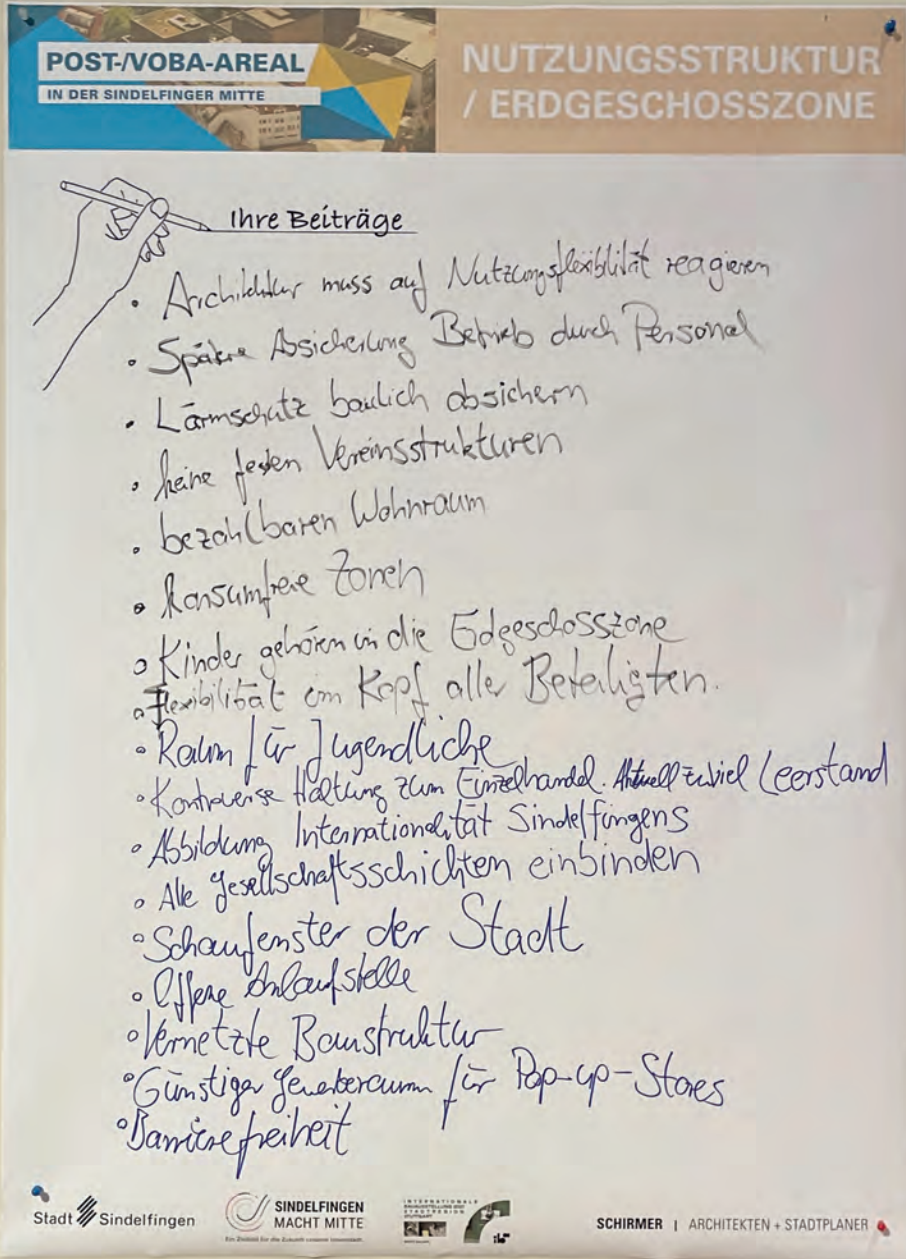 POST-/VOBA-AREAL
IN DER SINDELFINGER MITTE
NUTZUNGSSTRUKTUR
/ ERDGESCHOSSZONE
Ihre Beiträge
• Architektur muss auf Nutzungsflexibilität reagieren
• Spätere Absicherung Betrieb durch Personal
• Lärmschutz baulich absichern
• keine festen Vereinsstrukturen
• bezahlbaren Wohnraum
• konsumfreie Zonen
• Kinder gehören in die Edgeschosszone
• Flexibilität im Kopf aller Beteiligten.
• Raum für Jugendliche
• Kontroverse Haltung zum Einzelhandel. Aktuell zuviel Leerstand
• Abbildung Internationalität Sindelfingens
• Alle Gesellschaftsschichten einbinden
• Schaufenster der Stadt
• Offene Anlaufstelle
• Vernetzte Baustruktur
• Günstiger Gewerberaum für Pop-up-Stores
• Barrierefreiheit
Stadt Sindelfingen
SINDELFINGEN
MACHT MITTE
Ein Zielbild für die Zukunft unserer Innenstadt.
INTERNATIONALE
BAUAUSSTELLUNG 2027
STADTREGION
STUTTGART
SCHIRMER | ARCHITEKTEN + STADTPLANER